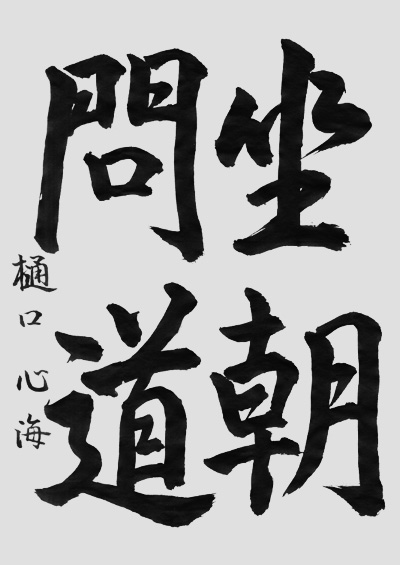 坐朝
問道
樋口心海